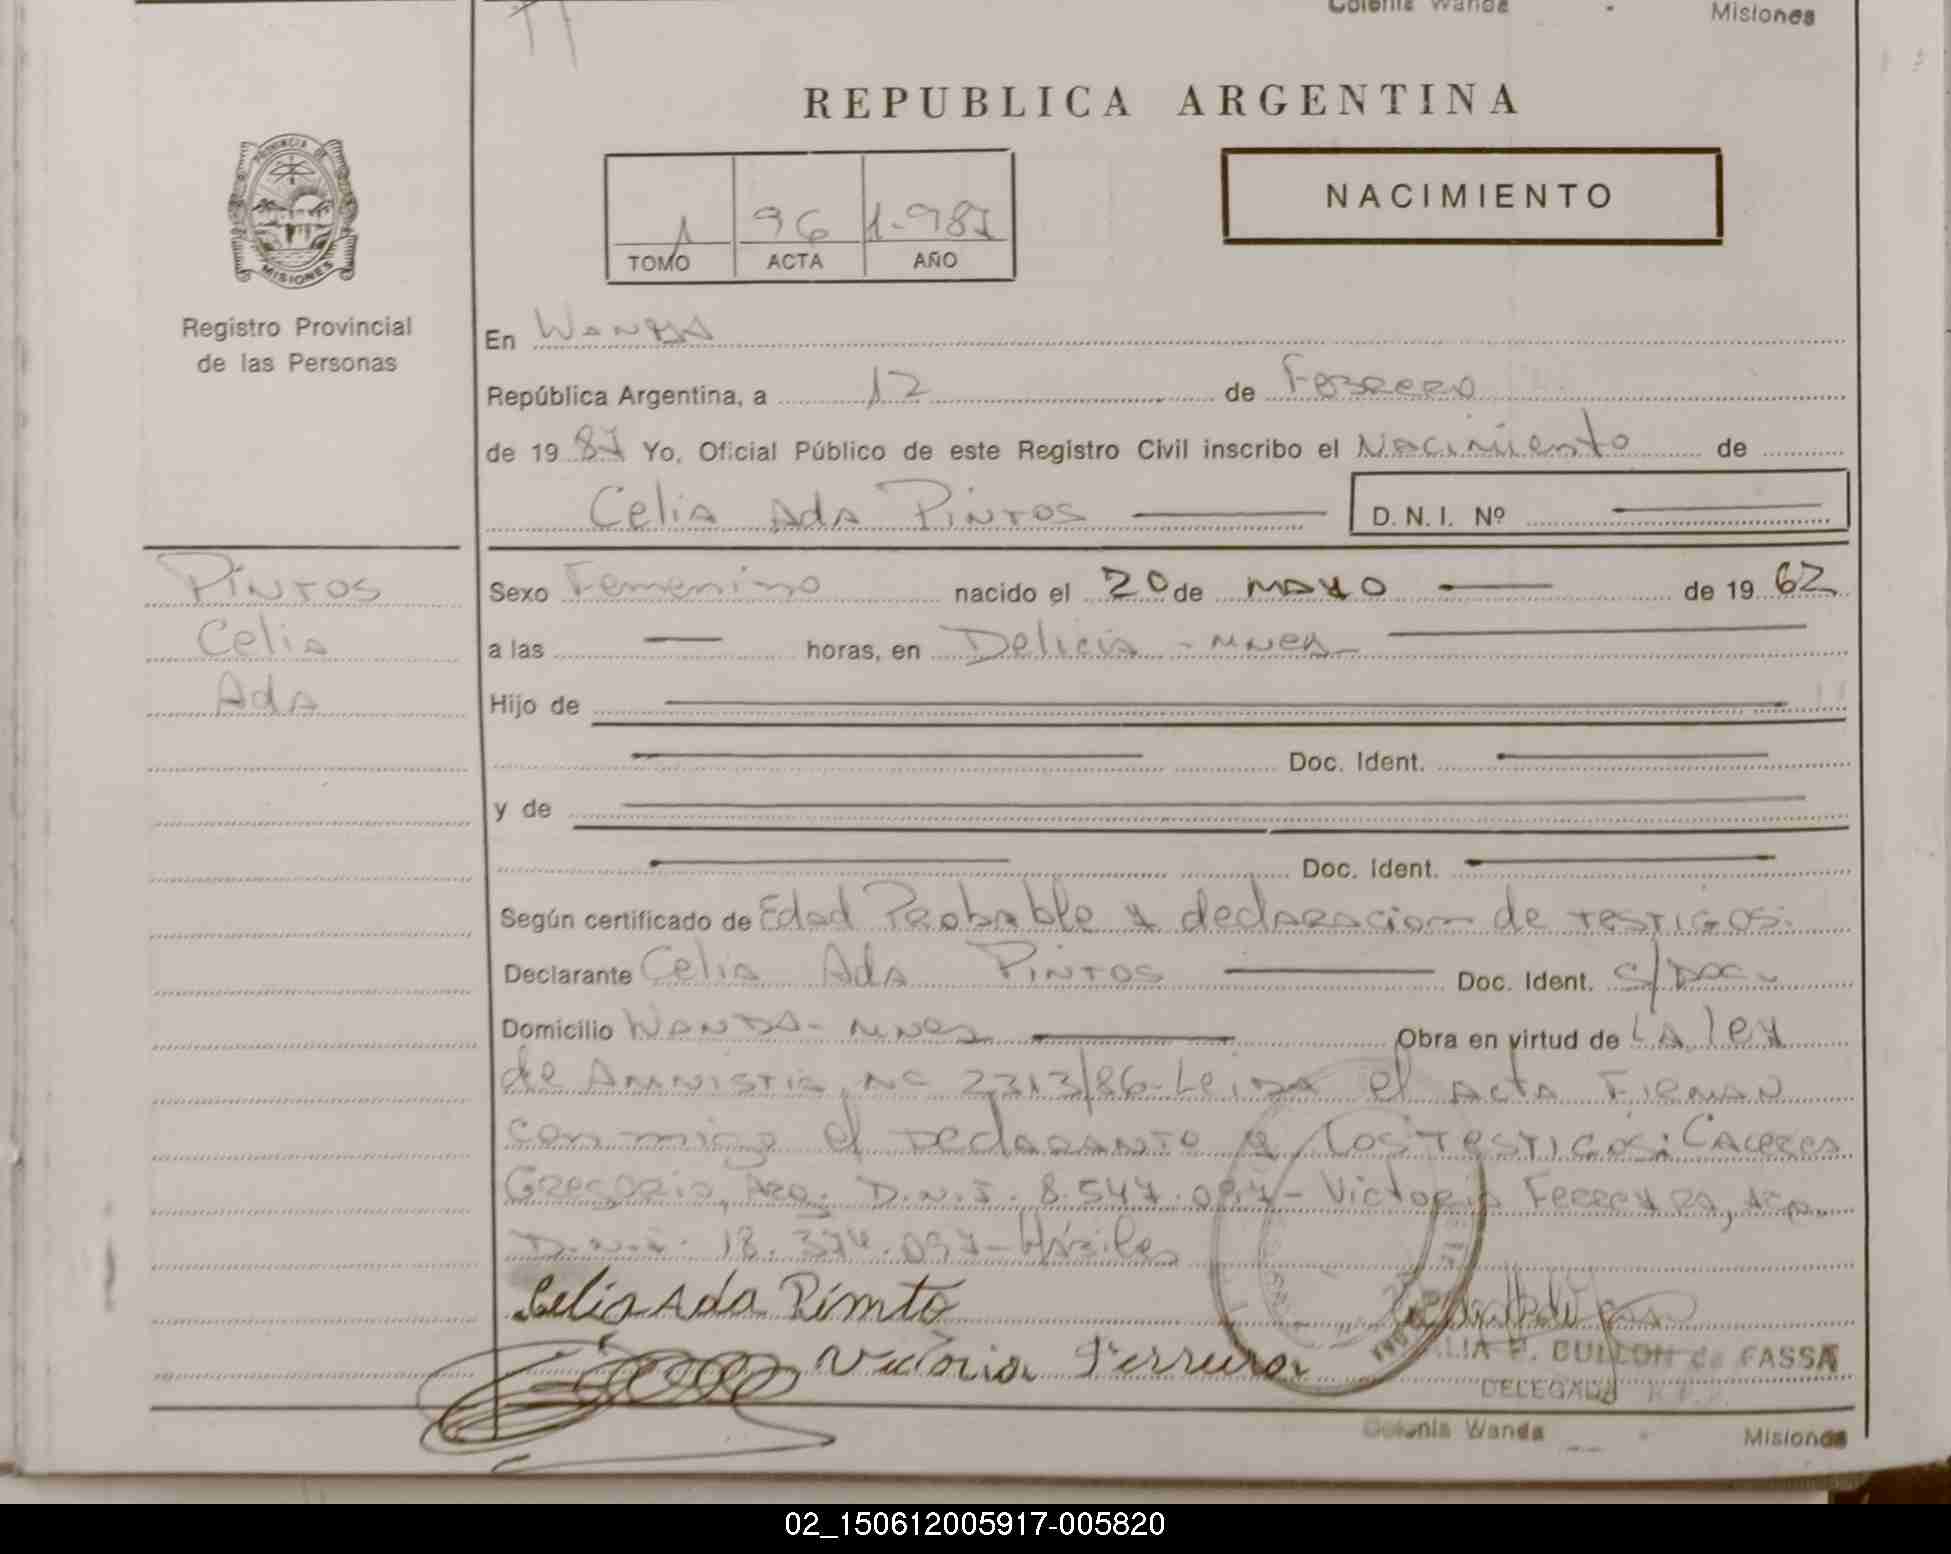 Colonia Wanda - Misiones
REPUBLICA ARGENTINA
NACIMIENTO
1 96 1.987
TOMO ACTA AÑO
PROVINCIA DE MISIONES
Registro Provincial
de las Personas
En Wanda
República Argentina, a 12 de Febrero
de 19 87 Yo, Oficial Público de este Registro Civil inscribo el Nacimiento de
Celia Ada Pintos
D.N.I. Nº
Pintos
Celia
Ada
Sexo Femenino nacido el 20 de mayo de 19 62
a las horas, en Delicia - mnes
Hijo de
Doc. Ident.
y de
Doc. Ident.
Según certificado de Edad Probable y declaracion de testigos.
Declarante Celia Ada Pintos Doc. Ident. S/Doc.
Domicilio Wanda - mnes Obra en virtud de la ley
de Amnistia, Nº 2313/86 - Leida el acta Firman
conmigo el declarante y los testigos: Caceres
Gregorio, Arg. D.N.I. 8.547.097 - Victoria Ferreyra, Arg.
D.N.I. 18.374.097 - Hábiles
Celia Ada Pimto
Victoria Ferreira
LIA F. CULLON de FASSA
DELEGADA
Colonia Wanda - Misiones
02_150612005917-005820